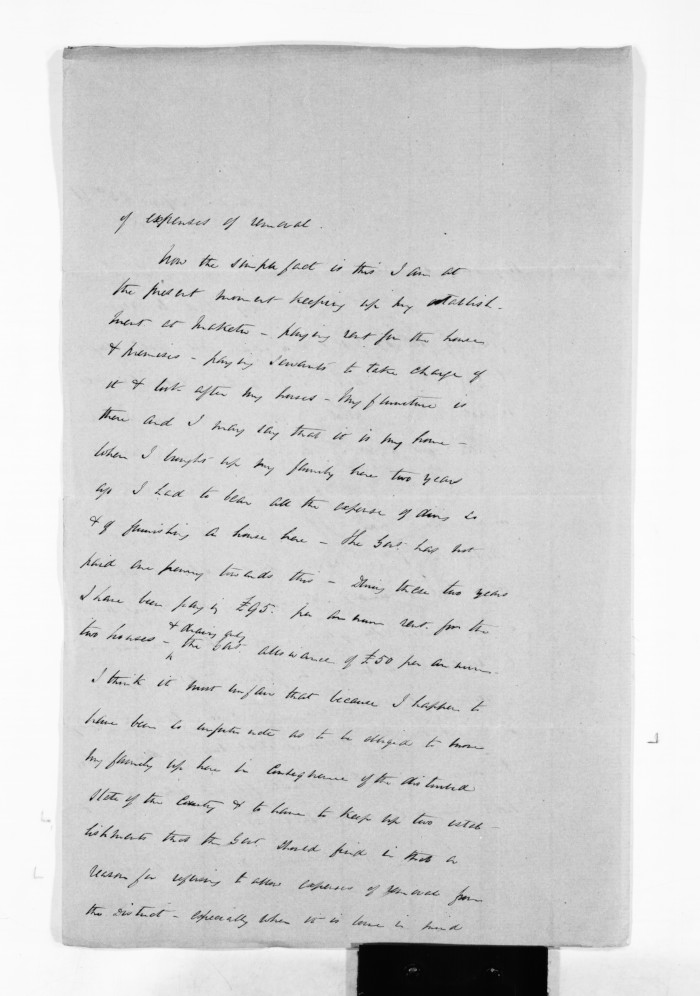 of expenses of removal.
Now the simple fact is this I am at
the present moment keeping up my establish-
ment at Maketu - paying rent for the house
& premises - paying servants to take charge of
it & look after my horses - My furniture is
there and I may say that it is my home -
When I brought up my family here two years
ago I had to bear all the expense of doing so
& of furnishing a house here - The Govt. has not
paid one penny towards this - During these two years
I have been paying £95. per annum rent for the
two houses - & drawing only the Govt. allowance of £50 per annum.
I think it most unfair that because I happen to
have been so unfortunate as to be obliged to move
my family up here in consequence of the disturbed
state of the Country & to have to keep up two estab-
lishments that the Govt. should find in that a
reason for refusing to allow expenses of removal from
this District - especially when it is borne in mind